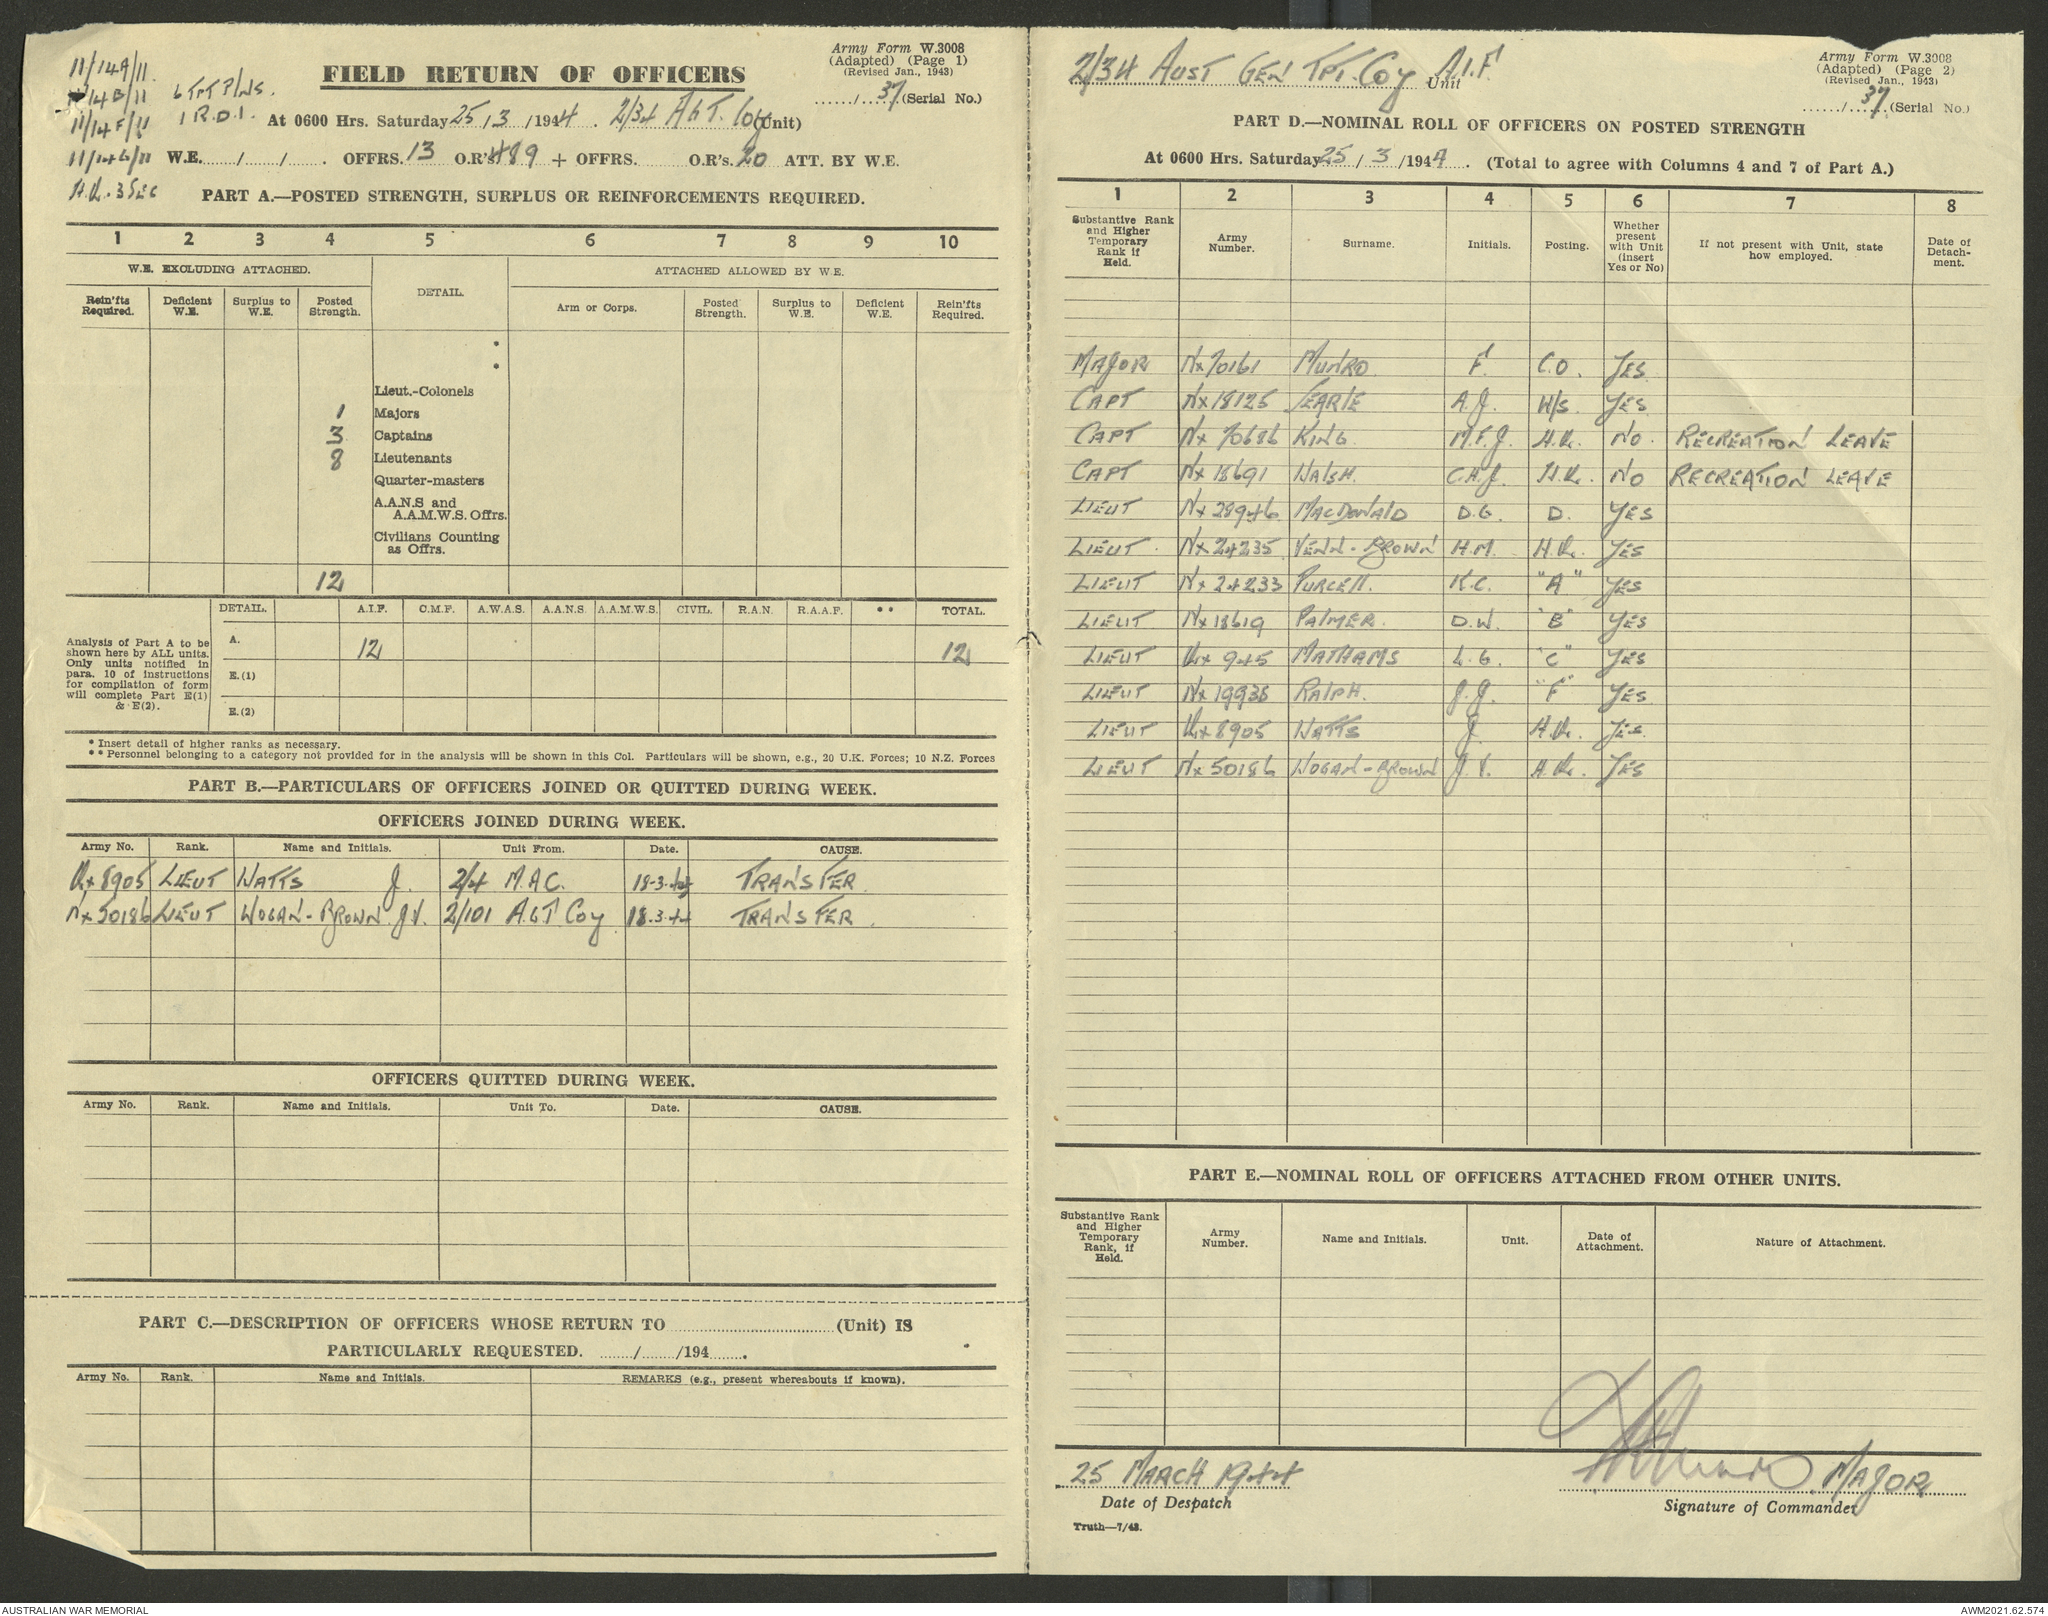 11/14A/11.
11/14B/11
11/14F/11
11/14G/11
H.Q. 3 SEC
6 TPT P/NS.
1 R.D.1.
FIELD RETURN OF OFFICERS
Army Form W.3008
(Adapted) (Page 1)
(Revised Jan., 1943)
....../...37.(Serial No.)
At 0600 Hrs. Saturday 25/3/1944. 2/34 AGT. Coy (Unit)
W.E. ....../....../...... . OFFRS. 13 O.R's. 489 + OFFRS. O.R's. 20 ATT. BY W.E.
PART A.—POSTED STRENGTH, SURPLUS OR REINFORCEMENTS REQUIRED.
1 2 3 4 5 6 7 8 9 10
W.E. EXCLUDING ATTACHED. DETAIL. ATTACHED ALLOWED BY W.E.
Rein'fts Required. Deficient W.E. Surplus to W.E. Posted Strength. Arm or Corps. Posted Strength. Surplus to W.E. Deficient W.E. Rein'fts Required.
*
*
Lieut.-Colonels
1 Majors
3 Captains
8 Lieutenants
Quarter-masters
A.A.N.S and
A.A.M.W.S. Offrs.
Civilians Counting
as Offrs.
12
DETAIL. A.I.F. C.M.F. A.W.A.S. A.A.N.S. A.A.M.W.S. CIVIL. R.A.N. R.A.A.F. ** TOTAL.
Analysis of Part A to be
shown here by ALL units.
Only units notified in
para. 10 of instructions
for compilation of form
will complete Part E(1)
& E(2).
A. 12 12
E.(1)
E.(2)
* Insert detail of higher ranks as necessary.
** Personnel belonging to a category not provided for in the analysis will be shown in this Col. Particulars will be shown, e.g., 20 U.K. Forces; 10 N.Z. Forces
PART B.—PARTICULARS OF OFFICERS JOINED OR QUITTED DURING WEEK.
OFFICERS JOINED DURING WEEK.
Army No. Rank. Name and Initials. Unit From. Date. CAUSE.
Qx8905 LIEUT WATTS J. 2/4 M.A.C. 18-3-44 TRANSFER
Nx50186 LIEUT WOGAN-BROWN J.V. 2/101 A.G.T Coy 18.3.44 TRANSFER.
OFFICERS QUITTED DURING WEEK.
Army No. Rank. Name and Initials. Unit To. Date. CAUSE.
PART C.—DESCRIPTION OF OFFICERS WHOSE RETURN TO .................... (Unit) IS
PARTICULARLY REQUESTED. ......./......./194.......
Army No. Rank. Name and Initials. REMARKS (e.g., present whereabouts if known).
2/34 AUST GEN TPT. Coy A.I.F. Unit
Army Form W.3008
(Adapted) (Page 2)
(Revised Jan., 1943)
....../...37.(Serial No.)
PART D.—NOMINAL ROLL OF OFFICERS ON POSTED STRENGTH
At 0600 Hrs. Saturday 25/3/1944. (Total to agree with Columns 4 and 7 of Part A.)
1 2 3 4 5 6 7 8
Substantive Rank and Higher Temporary Rank if Held. Army Number. Surname. Initials. Posting. Whether present with Unit (insert Yes or No) If not present with Unit, state how employed. Date of Detach-ment.
MAJOR Nx70161 MUNRO F. C.O. YES
CAPT Nx18125 SEARLE A.J. W/S. YES
CAPT Nx70686 KING. M.F.J. H.Q. NO. RECREATION LEAVE
CAPT Nx18691 WALSH. C.H.J. H.Q. NO RECREATION LEAVE
LIEUT Nx28946 MACDONALD D.G. D. YES
LIEUT. Nx24235 VENN-BROWN H.M. H.Q. YES
LIEUT Nx24233 PURCELL. K.C. "A" YES
LIEUT Nx18619 PALMER. D.W. "B" YES
LIEUT Qx945 MATHAMS L.G. "C" YES
LIEUT Nx19938 RALPH. J.J. "F" YES
LIEUT Qx8905 WATTS J. H.Q. YES.
LIEUT Nx50186 WOGAN-BROWN J.V. H.Q. YES
PART E.—NOMINAL ROLL OF OFFICERS ATTACHED FROM OTHER UNITS.
Substantive Rank and Higher Temporary Rank, if Held. Army Number. Name and Initials. Unit. Date of Attachment. Nature of Attachment.
25 MARCH 1944
Date of Despatch
F Munro MAJOR
Signature of Commander
Truth—7/43.
AUSTRALIAN WAR MEMORIAL
AWM2021.62.574